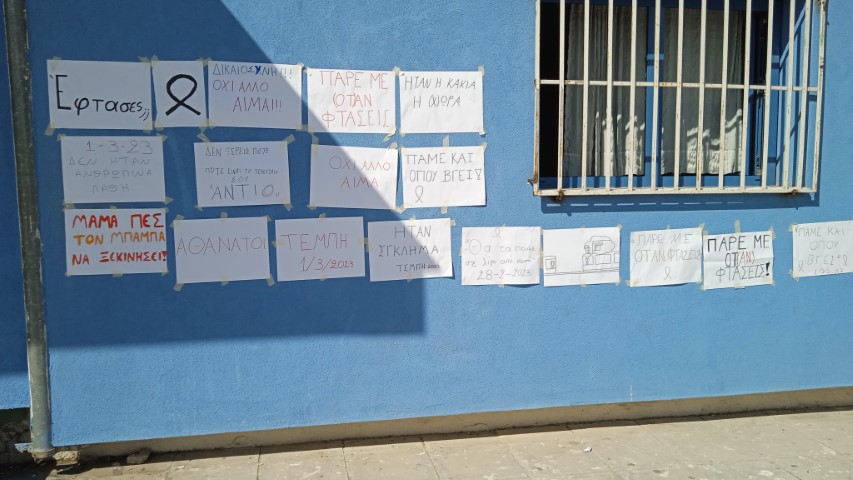 Έφτασες;;
ΔΙΚΑΙΟΣΥΝΗ!!!
ΟΧΙ ΑΛΛΟ
ΑΙΜΑ!!!
ΠΑΡΕ ΜΕ
ΟΤΑΝ
ΦΤΑΣΕΙΣ
ΗΤΑΝ Η ΚΑΚΙΑ
Η ΧΩΡΑ
1-3-23
ΔΕΝ ΗΤΑΝ
ΑΝΘΡΩΠΙΝΑ
ΛΑΘΗ
ΔΕΝ ΞΕΡΕΙΣ ΠΟΤΕ
ΠΟΤΕ ΕΙΝΑΙ ΤΟ ΤΕΛΕΥΤΑΙΟ
ΣΟΥ
ΆΝΤΙΟ..
ΟΧΙ ΑΛΛΟ
ΑΙΜΑ
ΠΑΜΕ ΚΑΙ
ΟΠΟΥ ΒΓΕΙ!
ΜΑΜΑ ΠΕΣ
ΤΟΝ ΜΠΑΜΠΑ
ΝΑ ΞΕΚΙΝΗΣΕΙ!
ΑΘΑΝΑΤΟΙ
ΤΕΜΠΗ
1/3/2023
ΗΤΑΝ
ΕΓΚΛΗΜΑ
ΤΕΜΠΗ 2023
Θα τα πούμε
σε λίγο
28-2-2023
ΠΑΡΕ ΜΕ
ΟΤΑΝ ΦΤΑΣΕΙΣ
ΠΑΡΕ ΜΕ
ΟΤΑΝ
ΦΤΑΣΕΙΣ!
ΠΑΜΕ ΚΑΙ
ΟΠΟΥ
ΒΓΕΙ